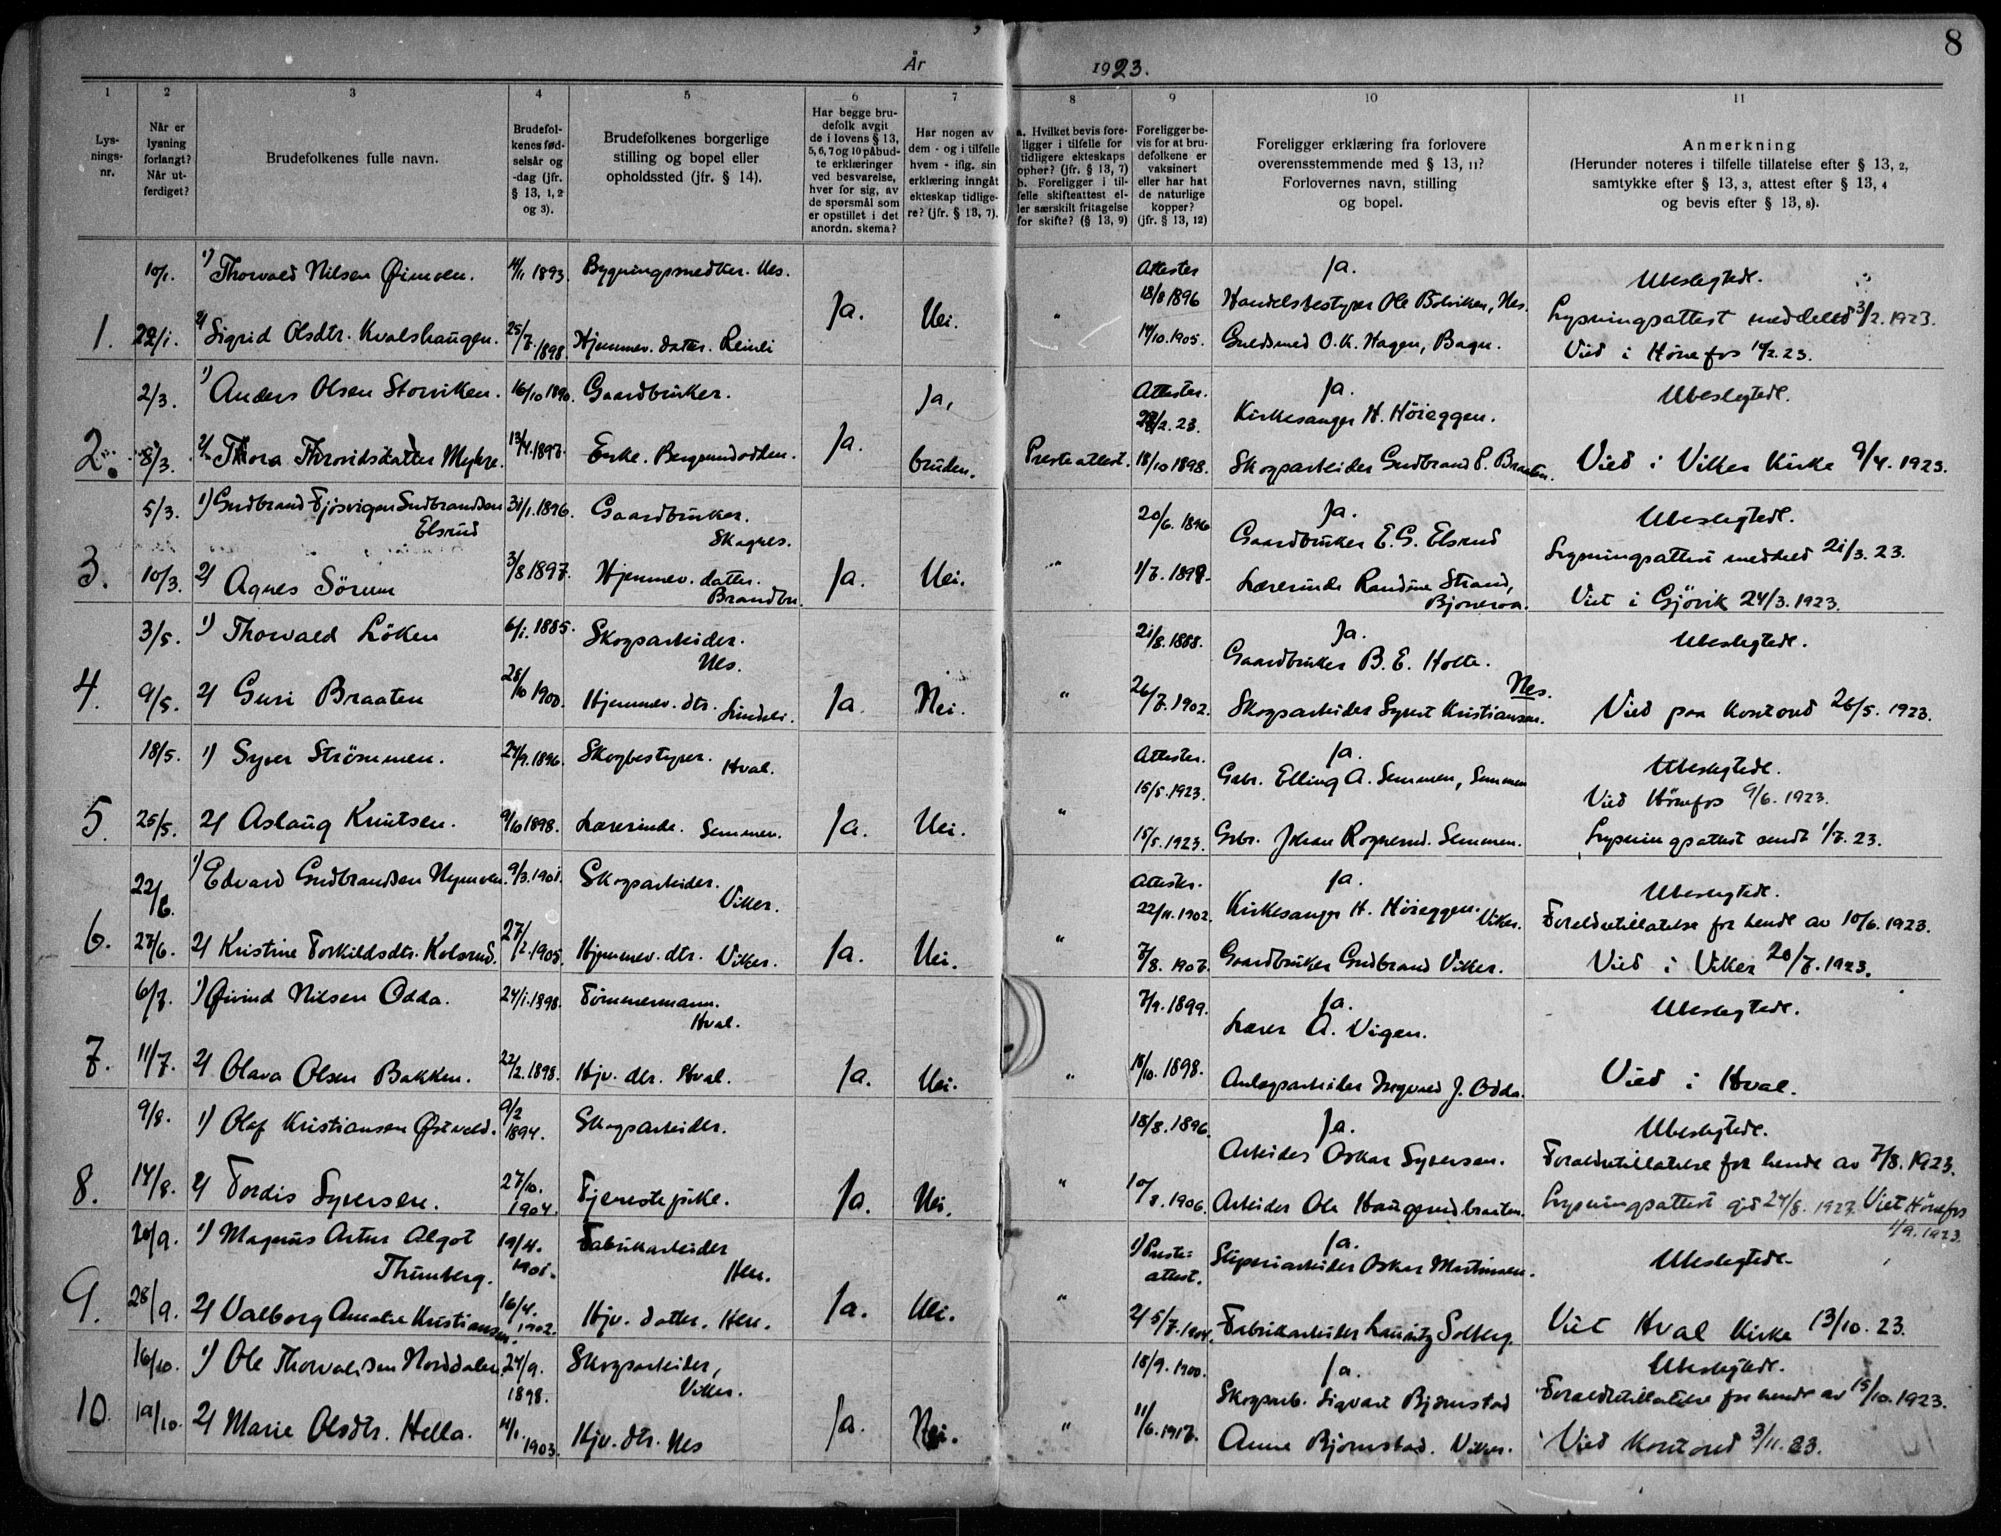 8
År 1923.
1 2 3 4 5 6 7 8 9 10 11
Lys-
nings-
nr.
Når er
lysning
forlangt?
Når ut-
ferdiget?
Brudefolkenes fulle navn.
Brudefol-
kenes fød-
selsår og
-dag (jfr.
§ 13, 1, 2
og 3).
Brudefolkenes borgerlige
stilling og bopel eller
opholdssted (jfr. § 14).
Har begge bru-
defolk avgit
de i lovens § 13,
5, 6, 7 og 10 påbud-
te erklæringer
ved besvarelse,
hver for sig, av
de spørsmål som
er opstillet i det
anordn. skema?
Har nogen av
dem - og i tilfelle
hvem - iflg. sin
erklæring inngåt
ekteskap tidlige-
re? (jfr. § 13, 7).
a. Hvilket bevis fore-
ligger i tilfelle for
tidligere ekteskaps
ophør? (jfr. § 13, 7)
b. Foreligger i til-
felle skifteattest el-
ler særskilt fritagelse
for skifte? (§ 13, 9)
Foreligger be-
vis for at bru-
defolkene er
vaksinert
eller har hat
de naturlige
kopper?
(jfr. § 13, 12)
Foreligger erklæring fra forlovere
overensstemmende med § 13, 11?
Forlovernes navn, stilling
og bopel.
Anmerkning
(Herunder noteres i tilfelle tillatelse efter § 13, 2,
samtykke efter § 13, 3, attest efter § 13, 4
og bevis efter § 13, 8).
10/1. 1) Thorvald Nilsen Øimoen. 1893. Bygningssnedker. Nes. Attester Ja. Ubeslegtede.
18/8 1896 Handelsbestyrer Ole Bolviken, Nes.
1. 22/1. 2) Sigrid Olsdtr. Kvalshaugen. 25/7. 1898. Hjemmev. datter. Reinli Ja. Nei. " 14/10.1905. Guldsmed O. K. Hagen, Bagn. Lysningsattest meddeled 3/2. 1923.
Vied i Hønefos 14/2. 23.
2/3. 1) Anders Olsen Storviken. 16/10 1890. Gaardbruker. Ja, Attester. Ja. Ubeslegtede.
/2. 23. Kirkesanger H. Høieggen.
2. 8/3. 2) Thora Throvidsdatter Myhre. 13/4. 1897. Enke. Bergsundodden. Ja. bruden. Presteattest. 18/10 1898. Skogsarbeider Gudbrand P. Braaten. Vied i Viker Kirke 9/4. 1923.
5/3. 1) Gudbrand Fjøsvigen Gudbrandsen 31/1. 1896. Gaardbruker. 20/6. 1896 Ja. Ubeslegtede.
Elsrud Skagnes. Gaardbruker E. G. Elsrud Lysningsattest meddeled 21/3. 23.
3. 10/3. 2) Agnes Sørum 3/8 1897. Hjemmev. datter. Ja. Nei. " 1/7. 1898. Lærerinde Randine Strand, Viet i Gjøvik 24/3. 1923.
Brandbu. Bjoneroa.
3/5. 1) Thorvald Løken 6/1. 1885. Skogsarbeider. 21/8. 1888. Ja. Ubeslegtede.
Nes. Gaardbruker B. E. Holte.
Nes.
4. 9/5. 2) Guri Braaten 28/10 1900. Hjemmev. dtr. Lindeli. Ja. Nei. " 26/7. 1902. Skogsarbeider Syvert Kristiansen. Vied paa kontoret 26/5. 1923.
18/5. 1) Syver Strømmen. 27/9. 1896. Skogbestyrer. Hval. Attester. Ja. Ubeslegtede.
15/5. 1923. Gbr. Elling A. Semmen, Semmen Vied Hønefos 9/6. 1923.
5. 25/5. 2) Aslaug Knutsen. 9/6 1898. Lærerinde. Semmen. Ja. Nei. " 15/5. 1923. Gbr. Johan Rognerud. Semmen. Lysningsattest sendt 1/7. 23.
22/6. 1) Edvard Gudbrandsen Nymoen. 9/3. 1901. Skogsarbeider. Attester. Ja. Ubeslegtede.
Viker. 22/11. 1902. Kirkesanger H. Høieggen. Viker. Foreldretillatelse for hende av 10/6. 1923.
6. 27/6. 2) Kristine Torkildsdtr. Kolsrud. 27/2. 1905. Hjemmev. dtr. Viker. Ja. Nei. " 7/8. 1907. Gaardbruker Gudbrand Viker. Vied i Viker 20/7. 1923.
6/7. 1) Øivind Nilsen Odda. 24/1. 1898. Tømmermann. 7/9. 1899. Ja. Ubeslegtede.
Hval. Lærer A. Vigen.
7. 11/7. 2) Olava Olsen Bakken. 22/2. 1898. Hjv. dtr. Hval. Ja. Nei. " 18/10. 1898. Anlægsarbeider Ingvald J. Odda. Vied i Hval.
9/8. 1) Olaf Kristiansen Østvold. 9/2 1894. Skogsarbeider. 18/8. 1896. Ja. Ubeslegtede.
Arbeider Oskar Syversen. Foreldretillatelse for hende av 7/8. 1923.
8. 14/8. 2) Tordis Syversen. 27/10. 1904. Tjenestepike. Ja. Nei. " 10/8. 1906. Arbeider Ole Haugerudbraaten. Lysningsattest git 24/8. 1923. Viet Hønefos
1/9. 1923.
20/9. 1) Magnus Artur Algot 19/4. 1901. Fabrikarbeider 1) Preste= Ja. Ubeslegtede.
Thunberg. Hen. attest. Sliperiarbeider Oskar Martinsen.
9. 28/9. 2) Valborg Amalie Kristiansen. 16/4. 1902. Hjv. datter. Hen. Ja. Nei. " 2) 5/7. 1904. Fabrikarbeider Lauritz Solberg. Viet Hval Kirke 13/10. 23.
16/10. 1) Ole Thorvaldsen Norddalen. 24/9. 1898. Skogsarbeider, 18/9. 1900. Ja. Ubeslegtede.
Viker. Skogsarb. Sigvart Bjørnstad Foreldretillatelse for hende av 15/10. 1923.
10. 19/10. 2) Marie Olsdtr. Hella. 1903. Hjv. dtr. Nes Ja. Nei. " 11/6. 1917. Anne Bjørnstad. Viker. Vied kontoret 3/11. 23.